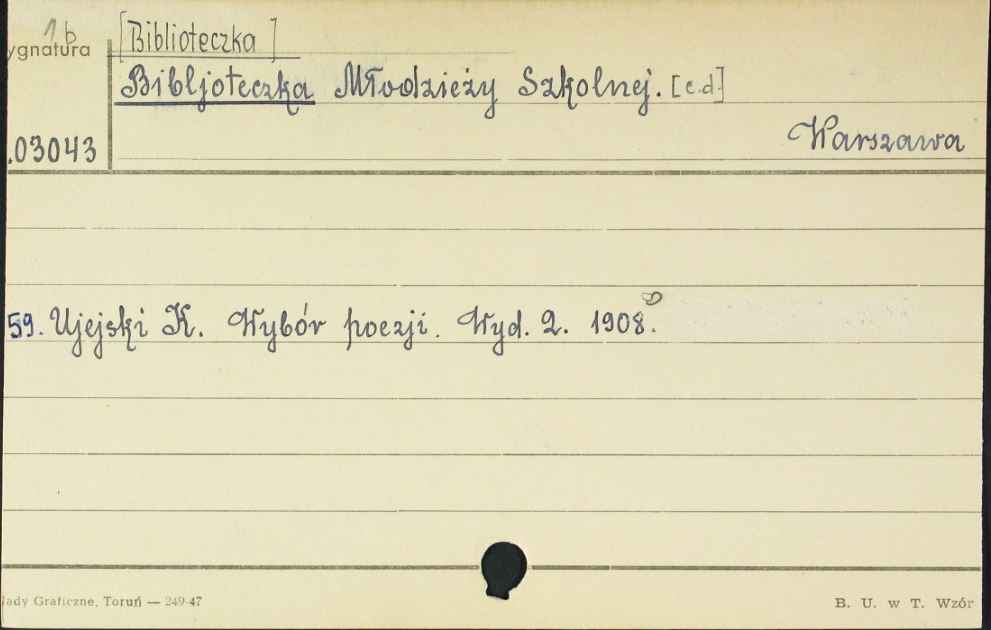 1b
ygnatura
[Biblioteczka]
Bibljoteczka Młodzieży Szkolnej. [c.d.]
.03043
Warszawa
59. Ujejski K. Wybór poezji. Wyd. 2. 1908.
łady Graficzne, Toruń — 249-47
B. U. w T. Wzór